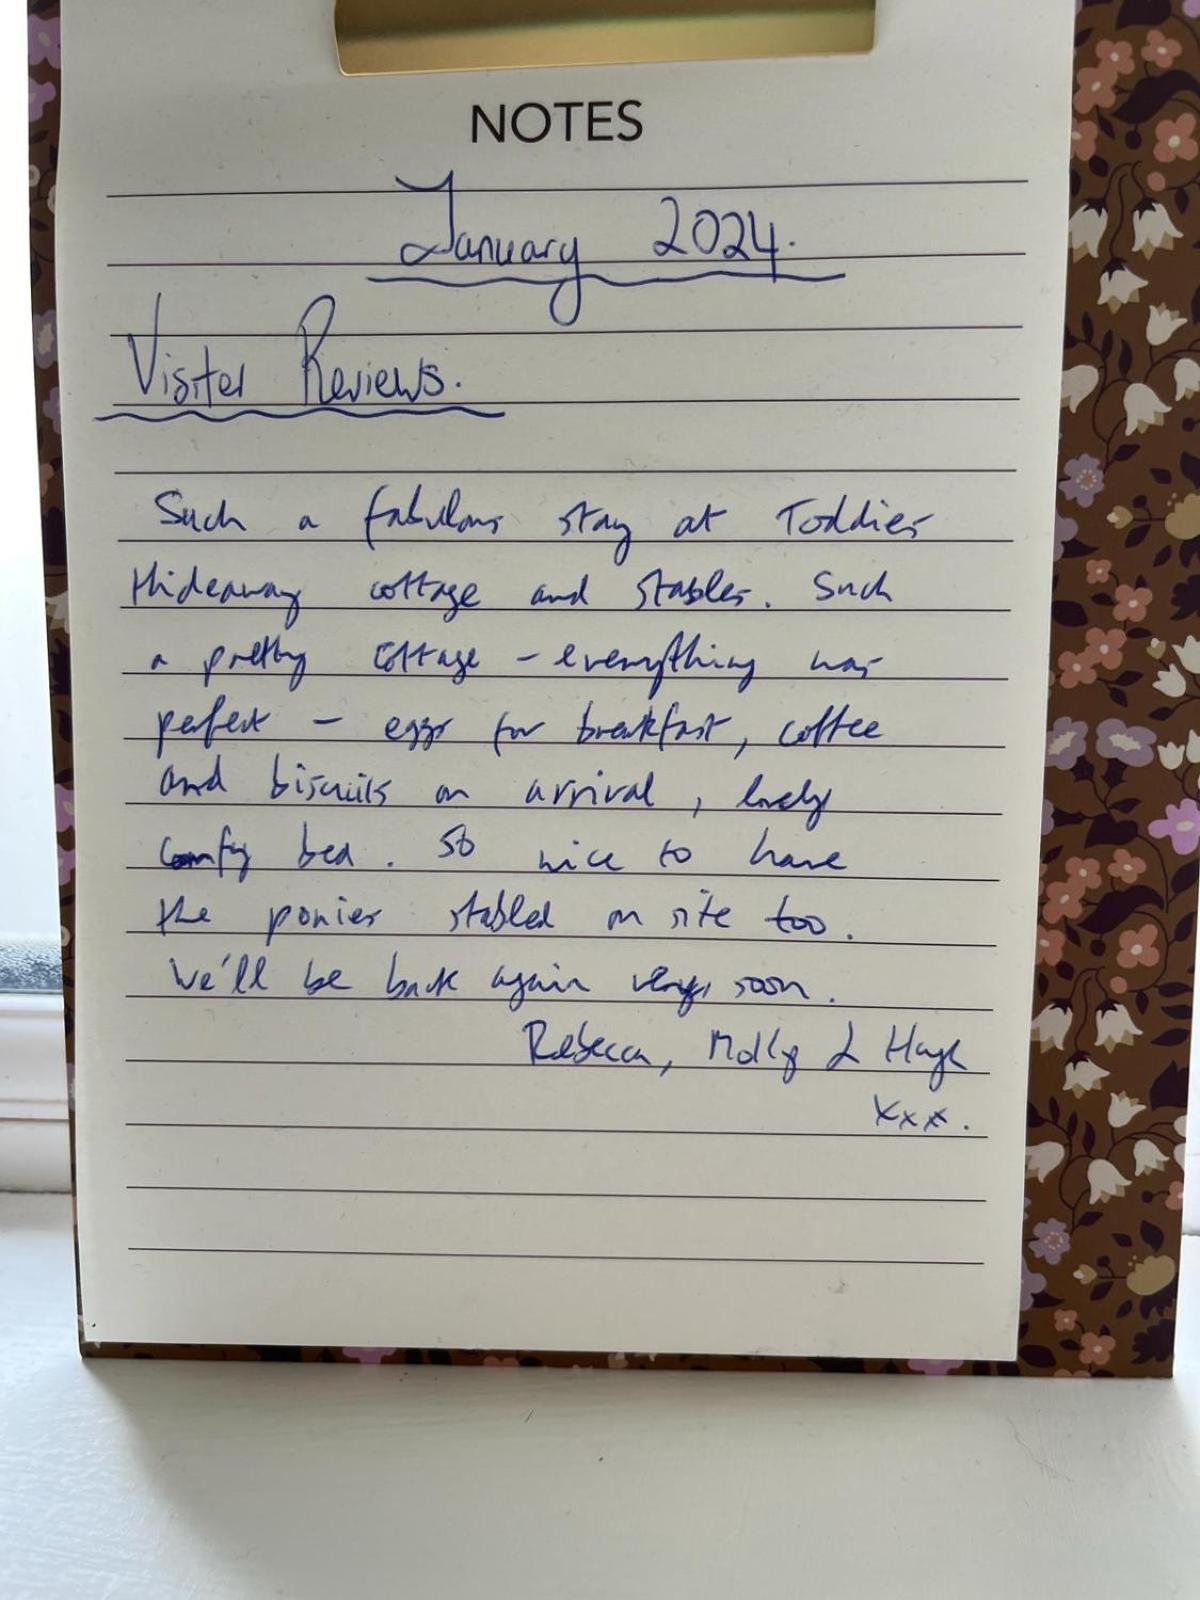 NOTES
January 2024.
Visitor Reviews.
Such a fabulous stay at Toddies
Hideaway cottage and stables. Such
a pretty cottage - everything was
perfect - eggs for breakfast, coffee
and biscuits on arrival, lovely
comfy bed. So nice to have
the ponies stabled on site too.
We'll be back again very soon.
Rebecca, Molly & Hugh
xxx.